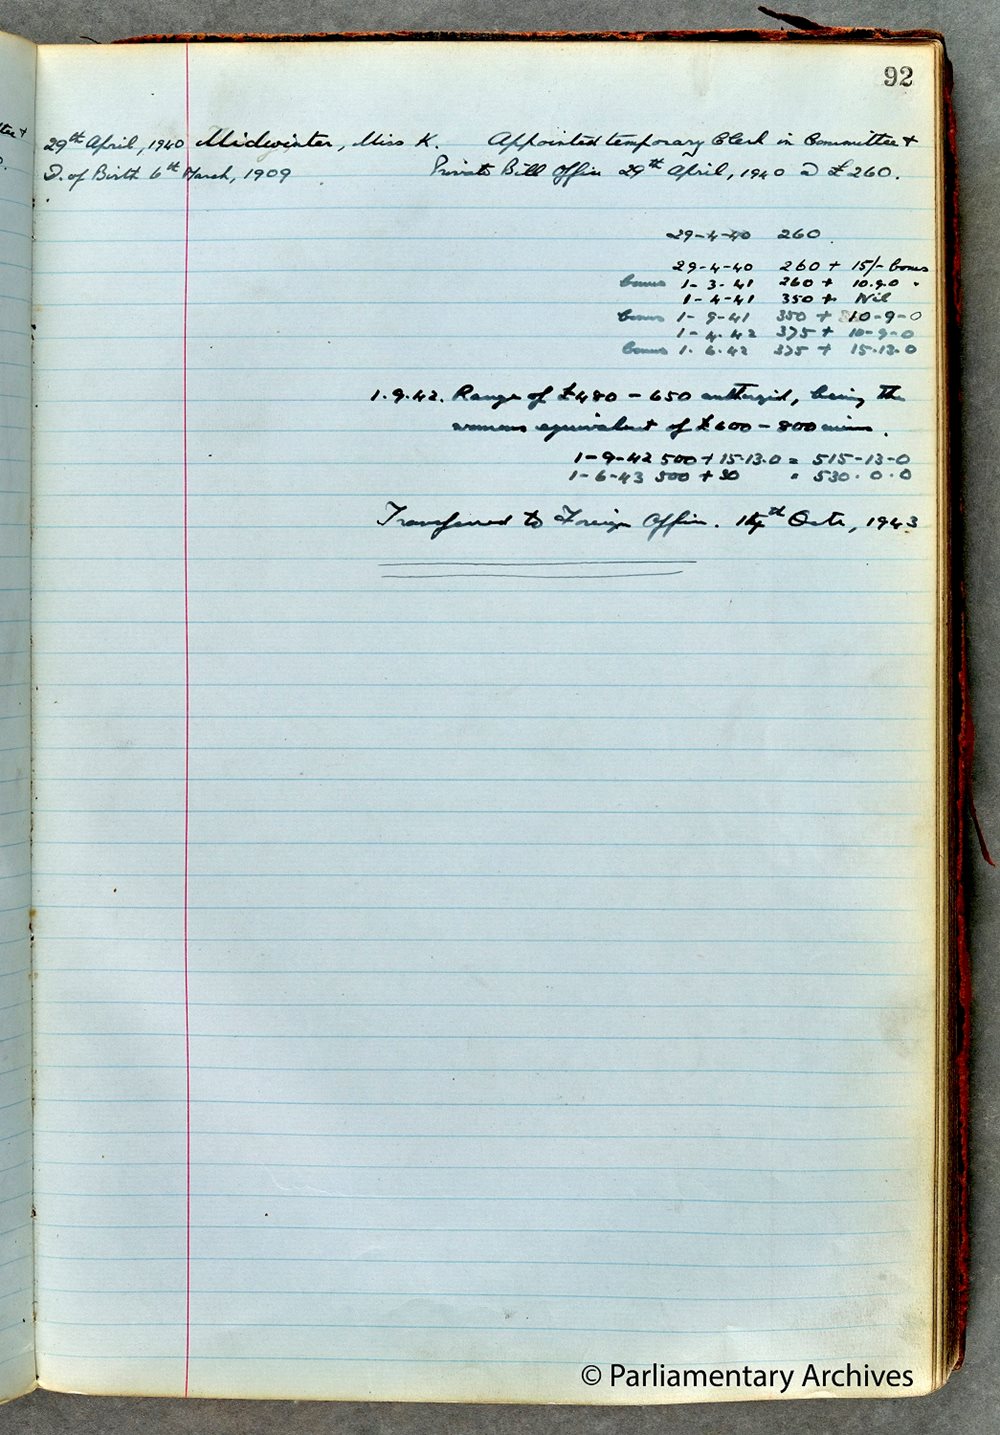 92
29th April, 1940 Midwinter, Miss K. Appointed temporary Clerk in Committee +
D. of Birth 6th March, 1909 Private Bill Office 29th April, 1940 @ £260.
29-4-40 260.
29-4-40 260 + 15/- bonus
bonus 1-3-41 260 + 10.9.0 "
1-4-41 350 + Nil
bonus 1-9-41 350 + 10-9-0
1-4-42 375 + 10-9-0
bonus 1.6.42 375 + 15.13.0
1.9.42. Range of £480 - 650 authorized, being the
womans equivalent of £600 - 800
1-9-42 500 + 15.13.0 = 515-13-0
1-6-43 500 + 30 " 530.0.0
Transferred to Foreign Office. 14th Octr, 1943
© Parliamentary Archives